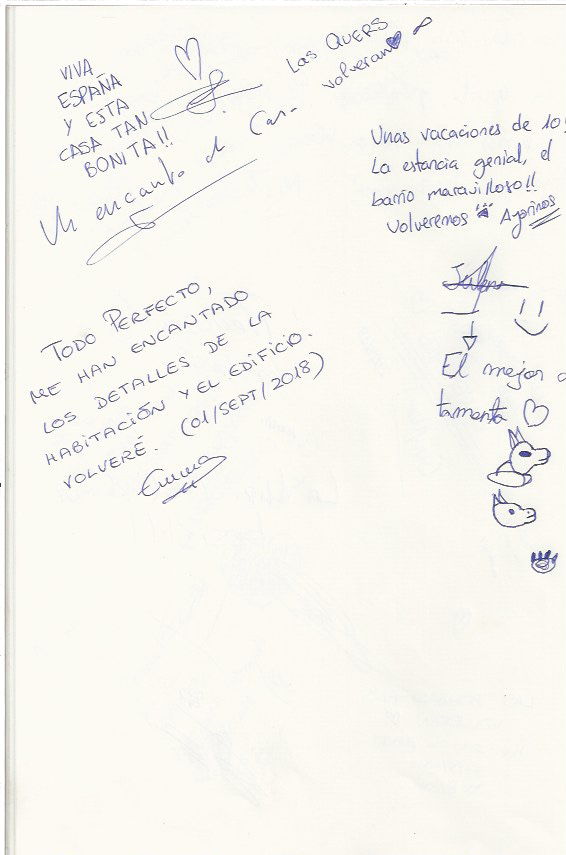 VIVA
ESPAÑA
Y ESTA
CASA TAN
BONITA!!
Las QUERS
volveran
Un encanto de Cas-
Unas vacaciones de 10!
La estancia genial, el
barrio maravilloso!!
Volveremos
TODO PERFECTO,
ME HAN ENCANTADO
LOS DETALLES DE LA
HABITACIÓN Y EL EDIFICIO.
VOLVERÉ. (01/SEPT/2018)
Emma
El mejor a
tamento